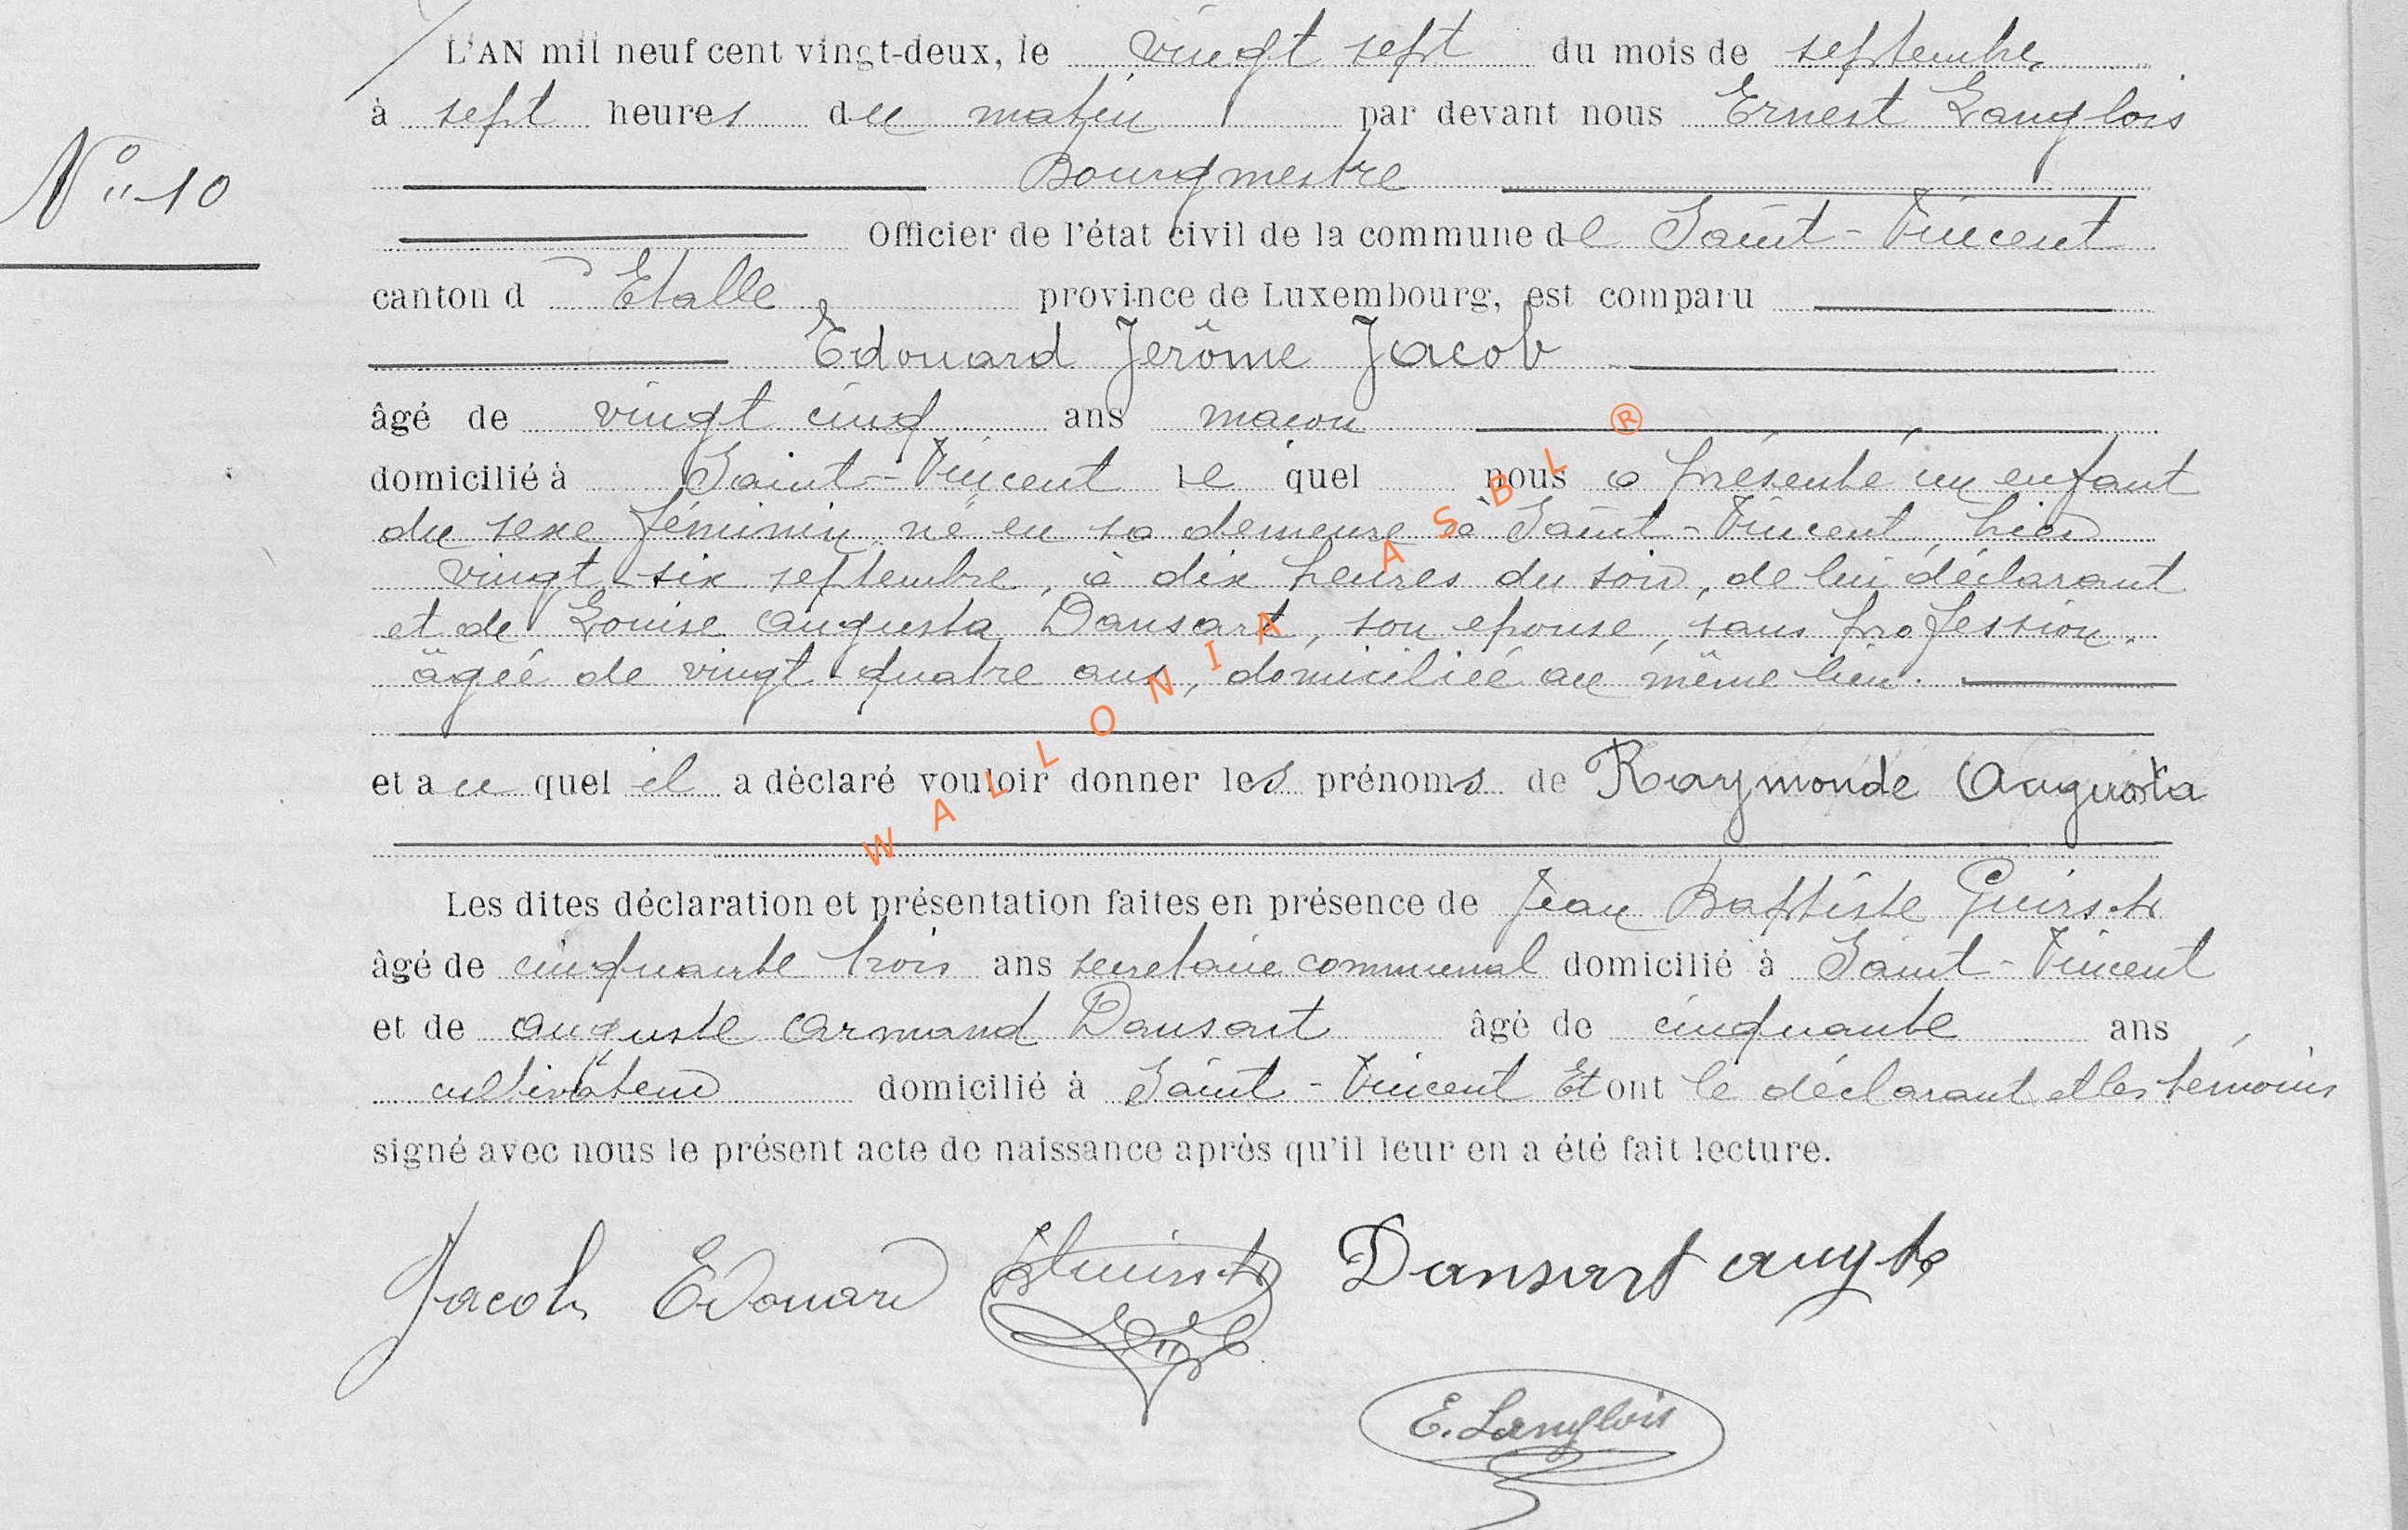 L'AN mil neuf cent vingt-deux, le vingt sept du mois de septembre
à sept heures du matin par devant nous Ernest Langlois
N° 10
Bourgmestre
Officier de l'état civil de la commune de Saint-Vincent
canton d'Etalle province de Luxembourg, est comparu
Edouard Jerôme Jacob
âgé de vingt cinq ans macon
domicilié à Saint-Vincent le quel nous a présenté un enfant
du sexe féminin né en sa demeure à Saint-Vincent, hier
vingt six septembre, à dix heures du soir, de lui déclarant
et de Louise Augusta Dansart, son epouse, sans profession.
âgée de vingt quatre ans, domiciliée au même lieu.
et au quel il a déclaré vouloir donner les prénoms de Raymonde Augusta
Les dites déclaration et présentation faites en présence de Jean Baptiste Guirsch
âgé de cinquante trois ans secretaire communal domicilié à Saint-Vincent
et de Auguste Armand Dansart âgé de cinquante ans
cultivateur domicilié à Saint-Vincent Et ont le déclarant et les témoins
signé avec nous le présent acte de naissance après qu'il leur en a été fait lecture.
Jacob Edouard Dansart Augte
E. Langlois
WALLONIA ASBL ®